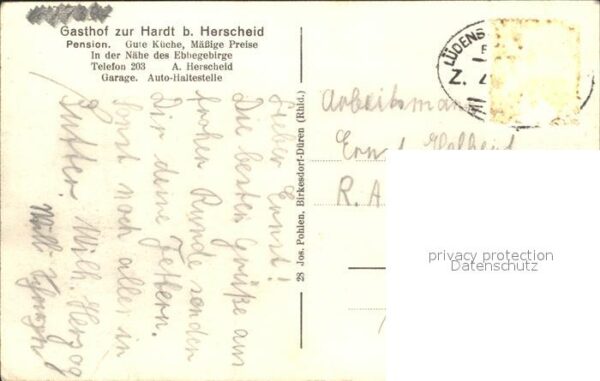 Gasthof zur Hardt b. Herscheid
Pension. Gute Küche, Mäßige Preise
In der Nähe des Ebbegebirge
Telefon 203 A. Herscheid
Garage. Auto-Haltestelle
Lieber Ernst!
Die besten Grüße aus
froher Runde senden
Dir deine
Sonst noch alles in
Butter. Wilh. Herzog
Willi
28 Jos. Pohlen, Birkesdorf-Düren (Rhld.)
LÜDENS
Z.
Arbeitsmann
Ernst
R. A
privacy protection
Datenschutz